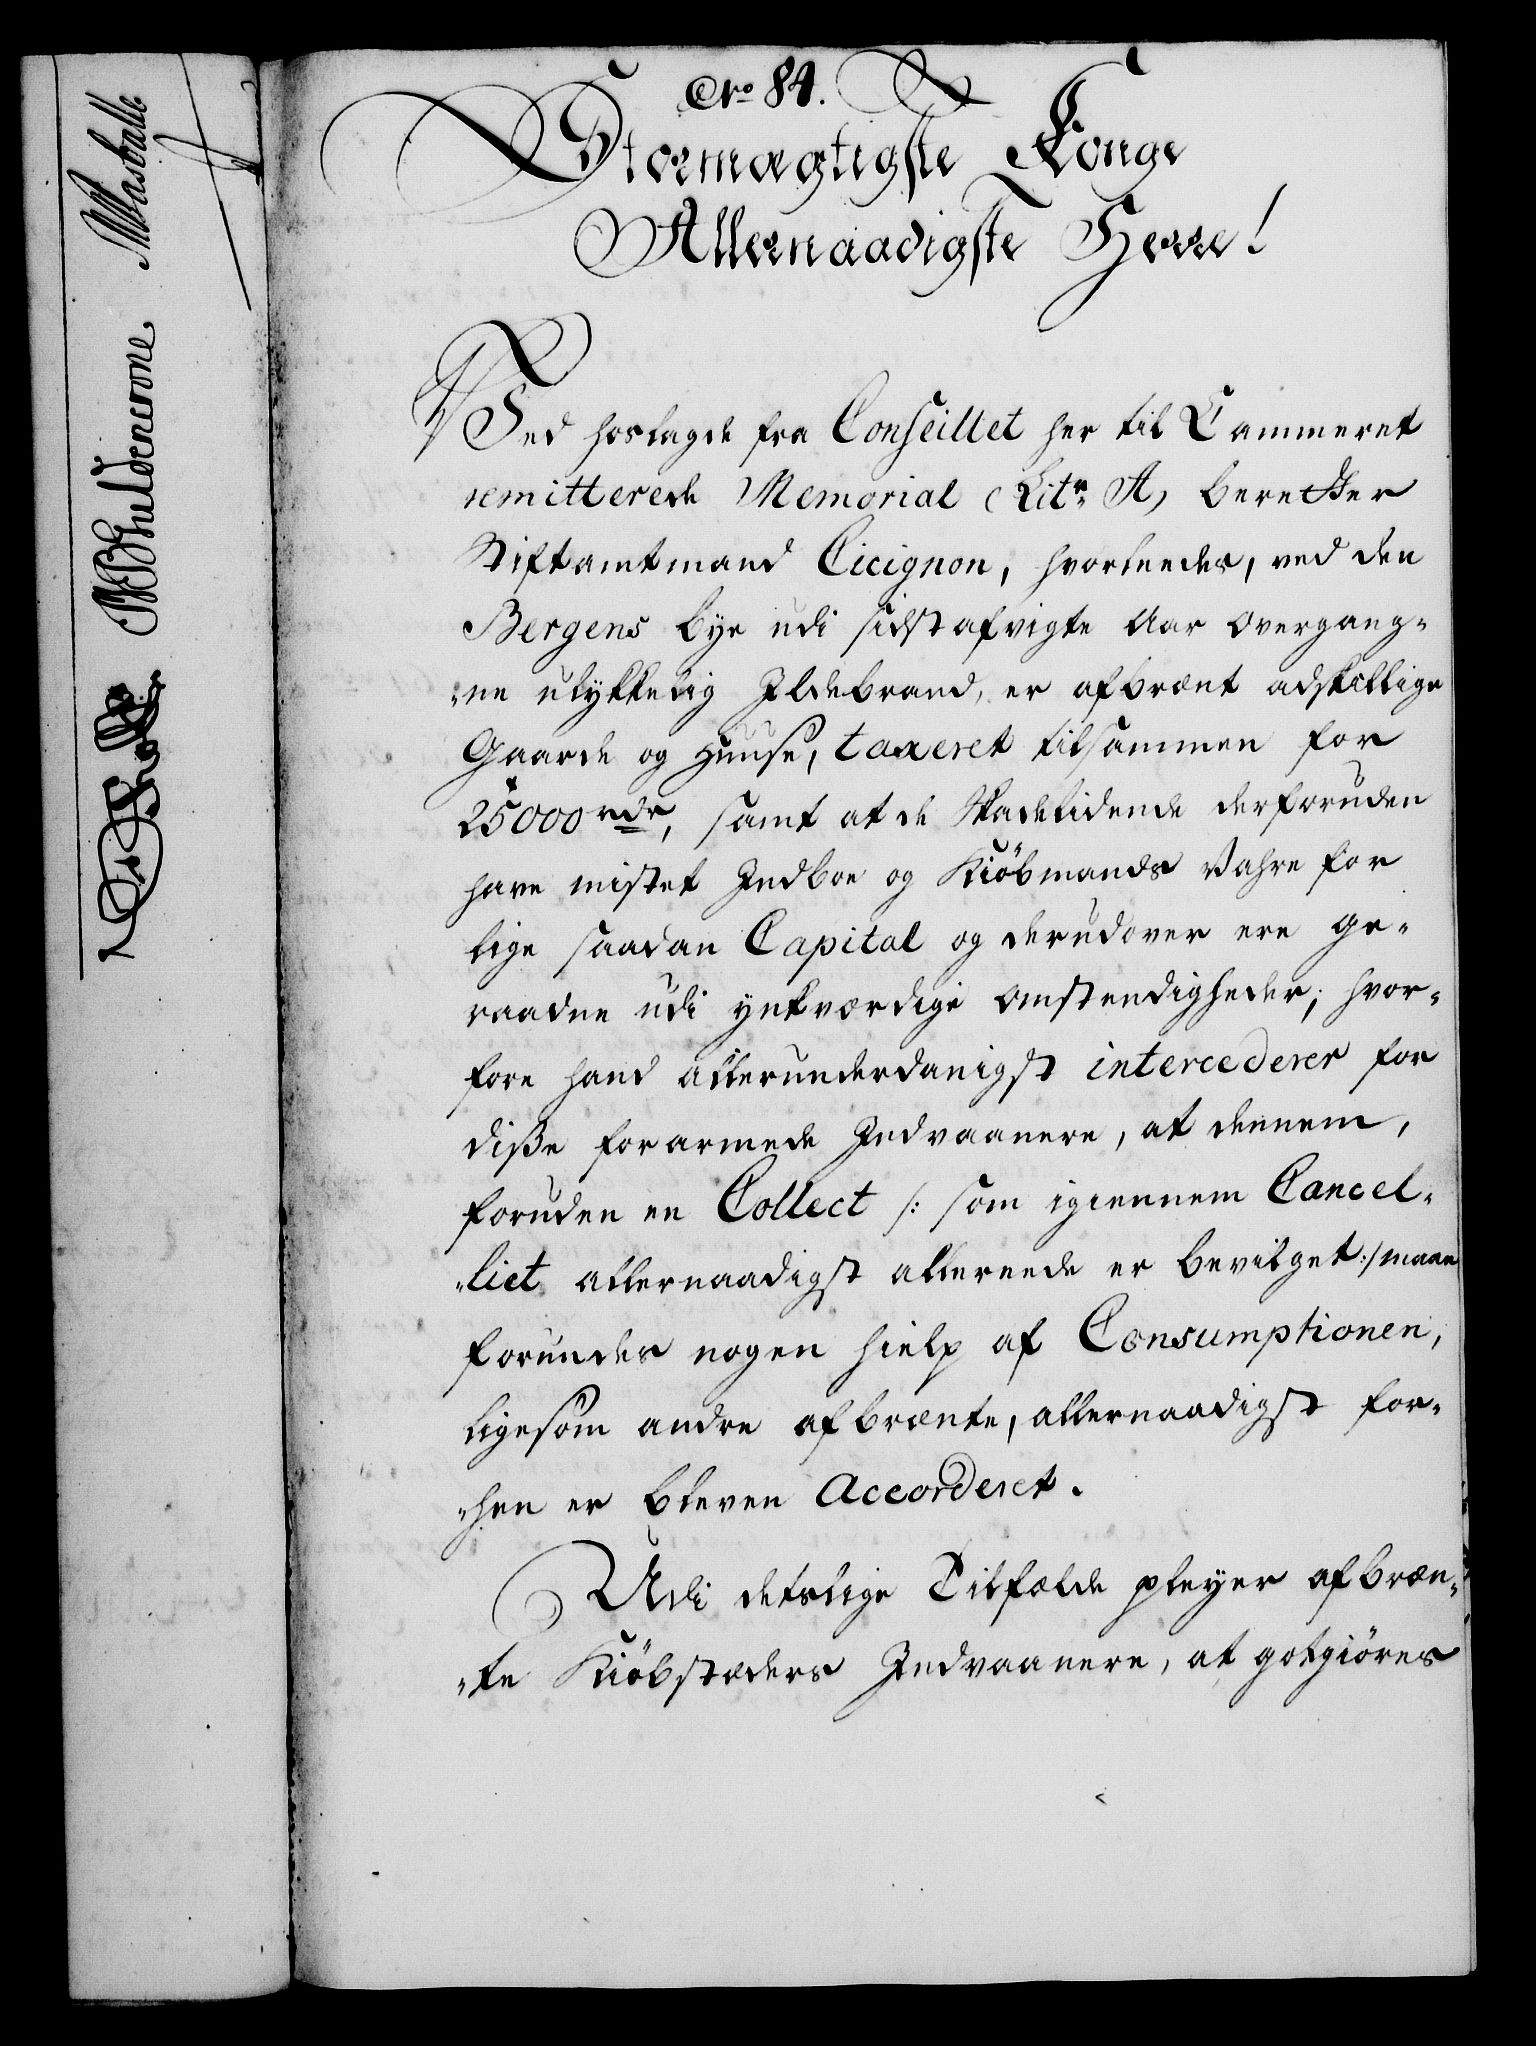 No 84.
Stormægtigste Konge
Allernaadigste Herre!
Ved hoslagde fra Conseillet her til Cammeret
remitterede Memorial (Litr. A) beretter
Stiftamtmand Cicignon, hvorleedes, ved den
Bergens bye udi sidstafvigte Aar overgang-
-ne ulykkelig Ildebrand, er afbrænt adskillige
Gaarde og Huuse, taxeret tilsammen for
25000 rdr, samt at de Skadelidende derforuden
have mistet Indboe og Kiöbmands Vahre for
lige saadan Capital og derudover ere ge-
raadne udi ynkværdige Omstendigheder; hvor-
fore hand allerunderdanigst intercederer for
diße forarmede Indvaanere, at dennem,
foruden en Collect /: som igiennem Cancel-
-liet allernaadigst allereede er bevilget :/ maae
forundes nogen hielp af Consumptionen,
ligesom andre afbrænte, allernaadigst for-
-hen er bleven Accorderet.
Udi deslige Tilfælde pleyer afbræn-
-te Kiöbstæders Indvaanere, at gotgiöres